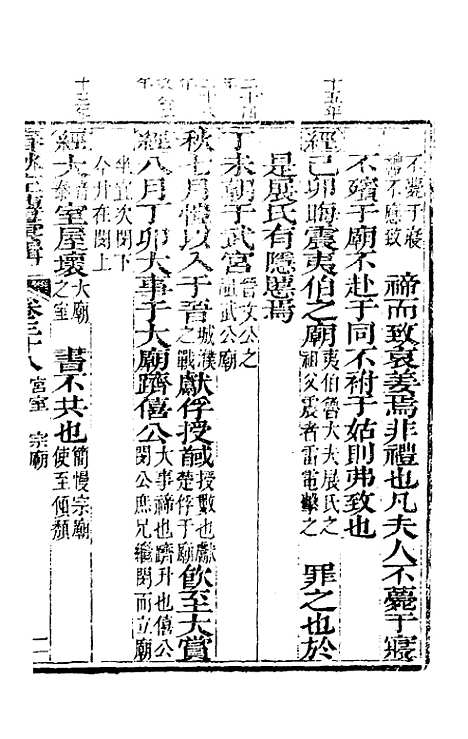 不薨于寢
禮不應致
禘而致哀姜焉非禮也凡夫人不薨于寢
不殯于廟不赴于同不祔于姑則弗致也
十五年
經己卯晦震夷伯之廟
夷伯魯大夫展氏之
祖父震者雷電擊之
罪之也於
是展氏有隱慝焉
二十四年
丁未朝于武宮
晉文公之
祖武公廟
秋七月愷以入于晉
城濮
之戰
獻俘授馘
授數也獻
楚俘于廟
飲至大賞
經八月丁卯大事于大廟躋僖公
大事禘也躋升也僖公
閔公庶兄繼閔而立廟
坐宜次閔下
今升在閔上
十三年
經大
室屋壞
大廟
之室
書不共也
簡慢宗廟
使至傾頹
春秋左傳 卷三十八 宮室 宗廟 二